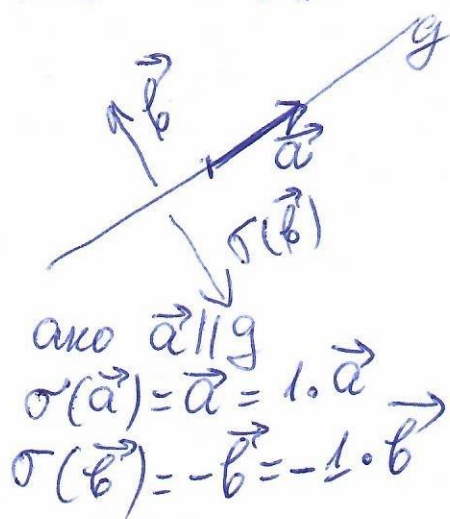 g
b⃗
a⃗
σ(b⃗)
ако a⃗ || g
σ(a⃗) = a⃗ = 1. a⃗
σ(b⃗) = -b⃗ = -1. b⃗